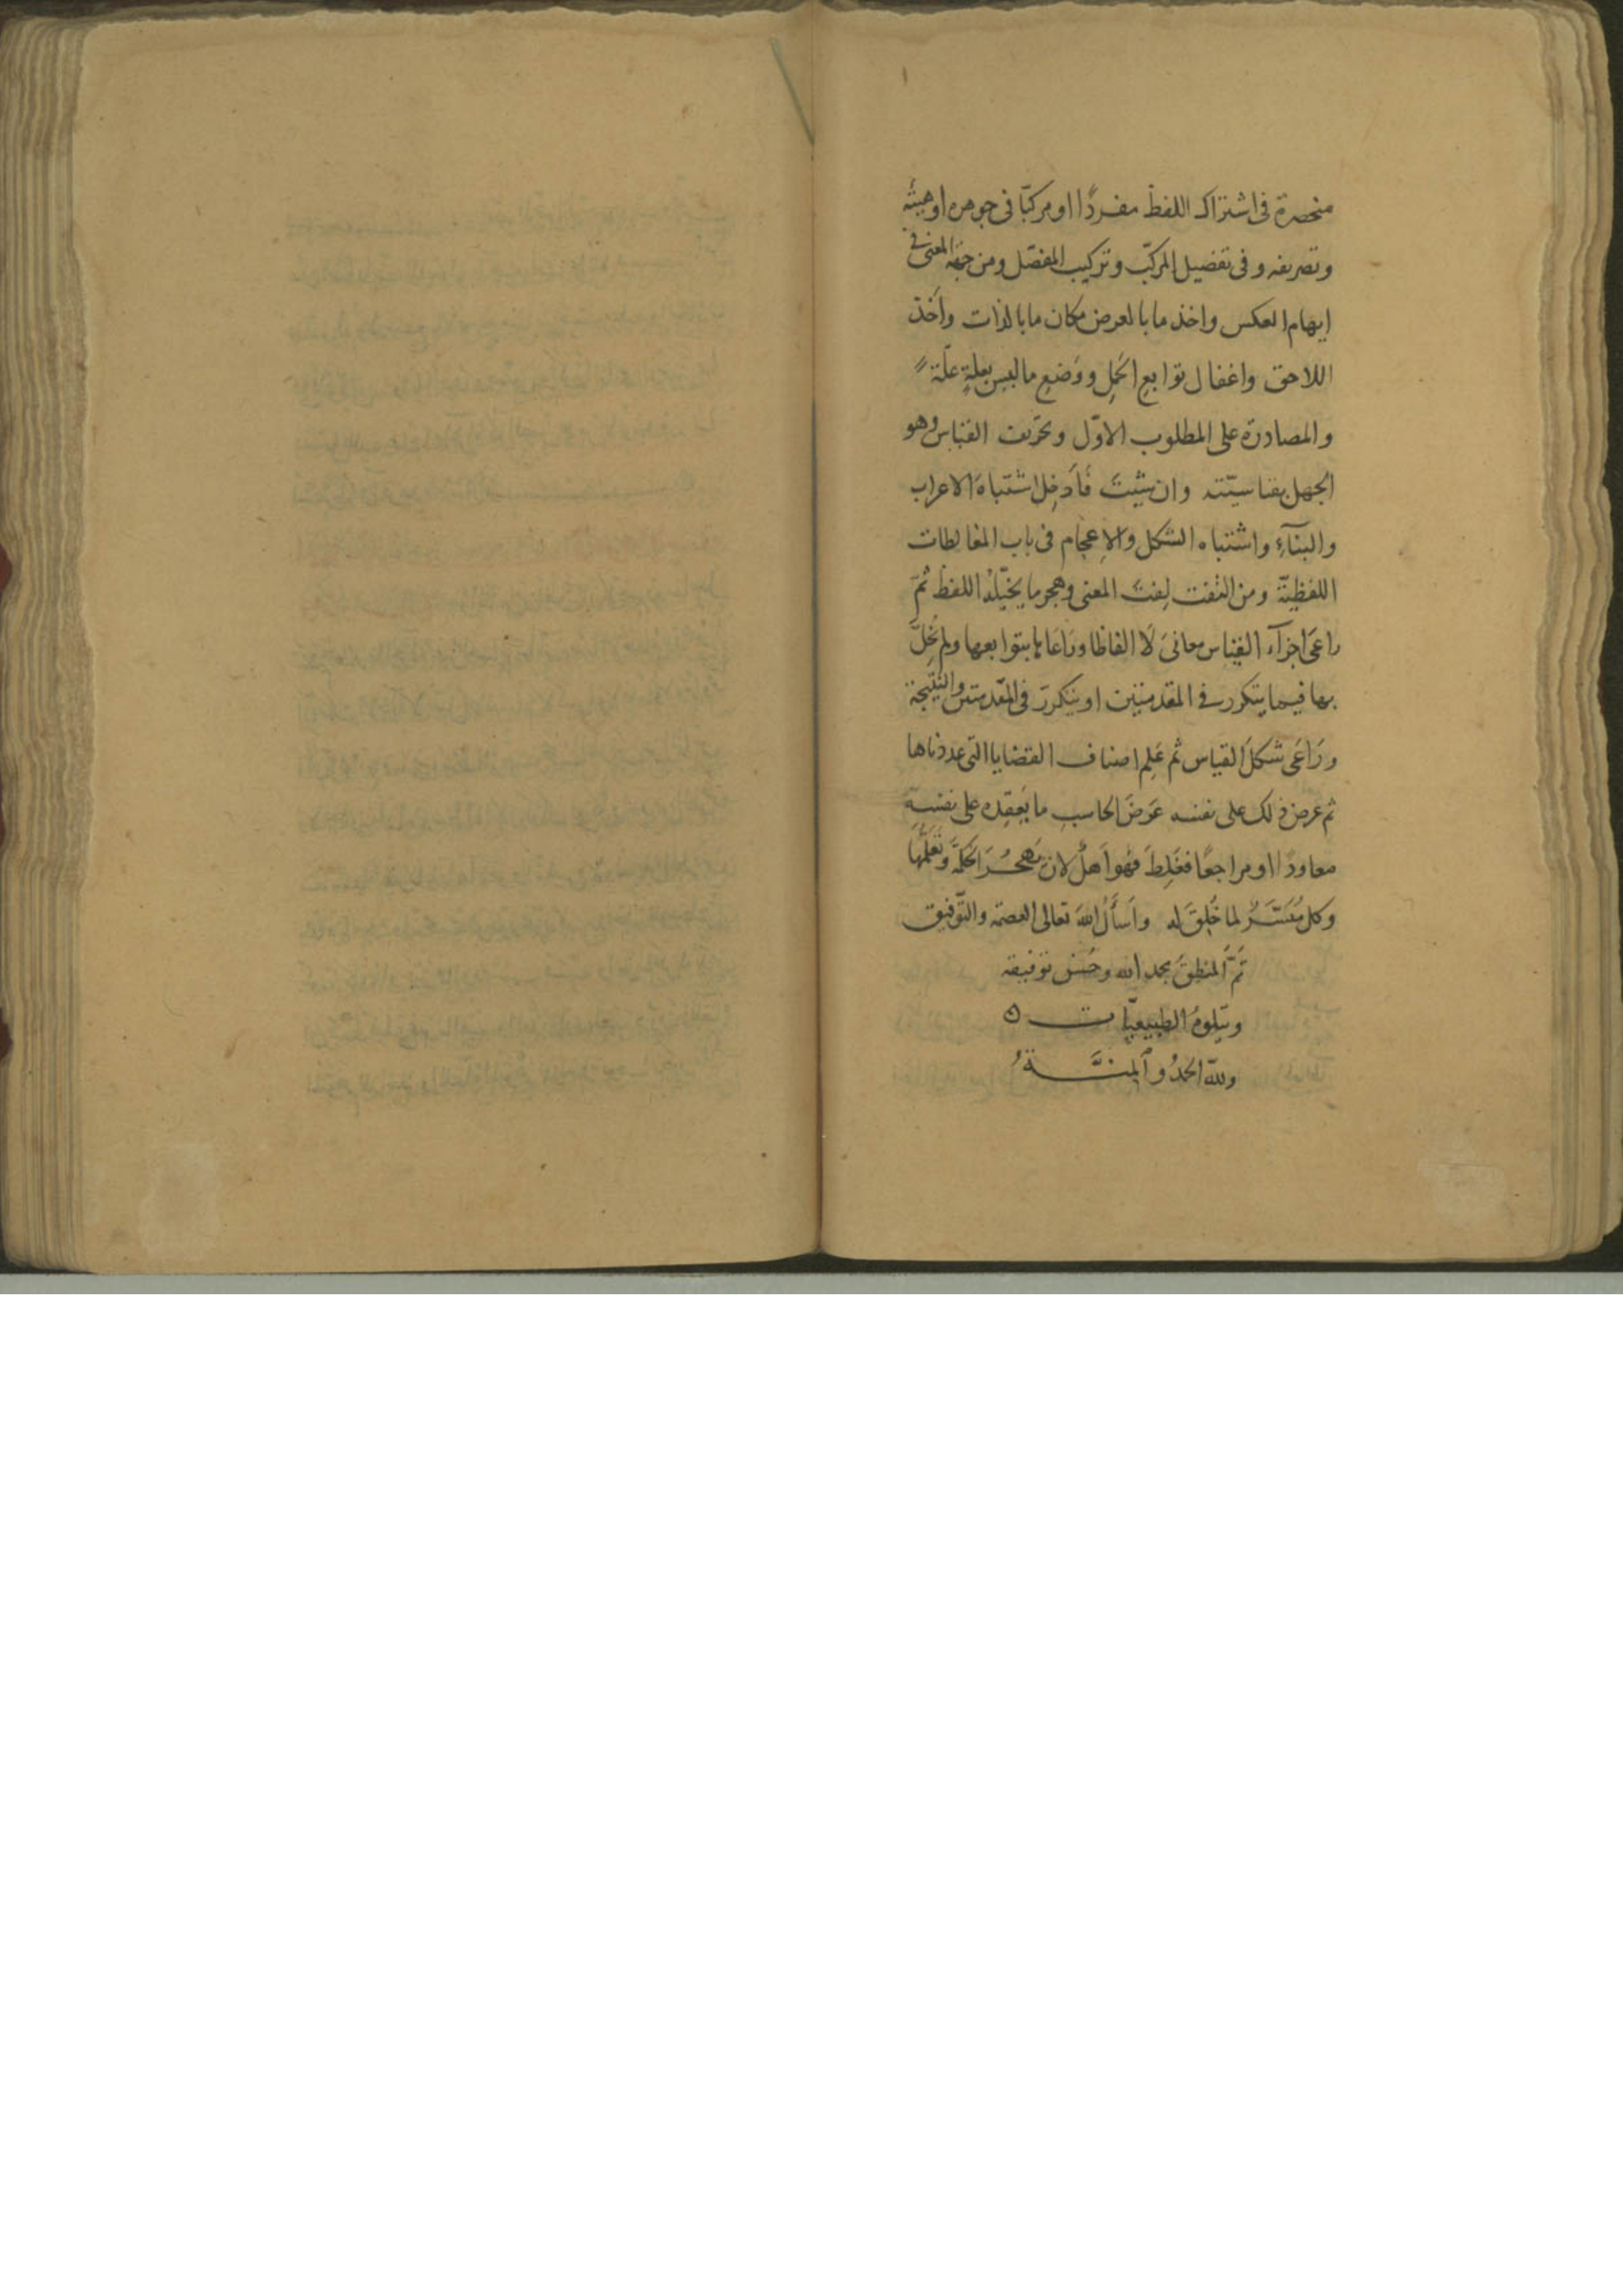 منحصرة فى اشتراك اللفظ مفردًا او مركبّا فى جوهره او هيئته
وتصريفه و فى تفضيل المركبّ وتركيب المفصّل ومن جهة المعنى فى
ايهام العكس واخذ ما بالعرض مكان ما بالذات واخذ
اللاحق واغفال توابع الحمل ووضع ما ليس بعلة علّة
والمصادرة على المطلوب الاوّل وتحريف القياس وهو
الجهل بقياسيّته وان شئتَ فَأَدخِل اشتباهَ الاعراب
والبنآءِ واشتباه الشكل والاِعجام فى باب المغالطات
اللفظيّة ومن التفت لِفتَ المعنى وهجر ما يخيّله اللفظ ثمّ
راعَى اجزآء القياس معانىَ لَا الفاظا وراعاها بتوابعها ولم يُخِلَّ
بها فيما يتكرر فى المقدمتين او يتكرر فى المقدمتين والنتيجة
ورَاعَى شكلَ القياس ثم عَلِم اصناف القضايا التى عددناها
ثم عرض ذلك على نفسه عَرضَ الحاسبِ ما يَعقِده على نفسِه
معاودًا او مراجعًا فغَلِطَ فهُو اَهلٌ لان يَهجُرَ الحكمَةَ وتَعَلُّمَهَا
وكل مُيَسَّرٌ لما خُلِقَ له واَسأَلُ اللهَ تعالى العصمة والتّوفيق
تَمَّ المنطقُ بحمد الله وحُسن توفيقه
ويتلوهُ الطبيعيّات
وللّه الحمدُ و المنَّةُ